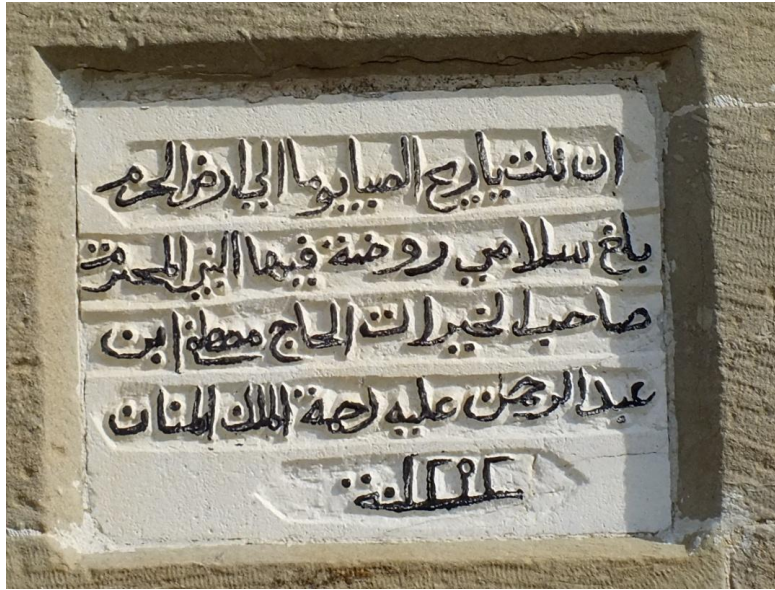 ان نلت يا ريح الصبا يوما الي ارض الحرم
بلغ سلامي روضة فيها النبي المحترم
صاحب الخيرات الحاج مصطفا ابن
عبد الرحمن عليه رحمة الملك المنان
سنة